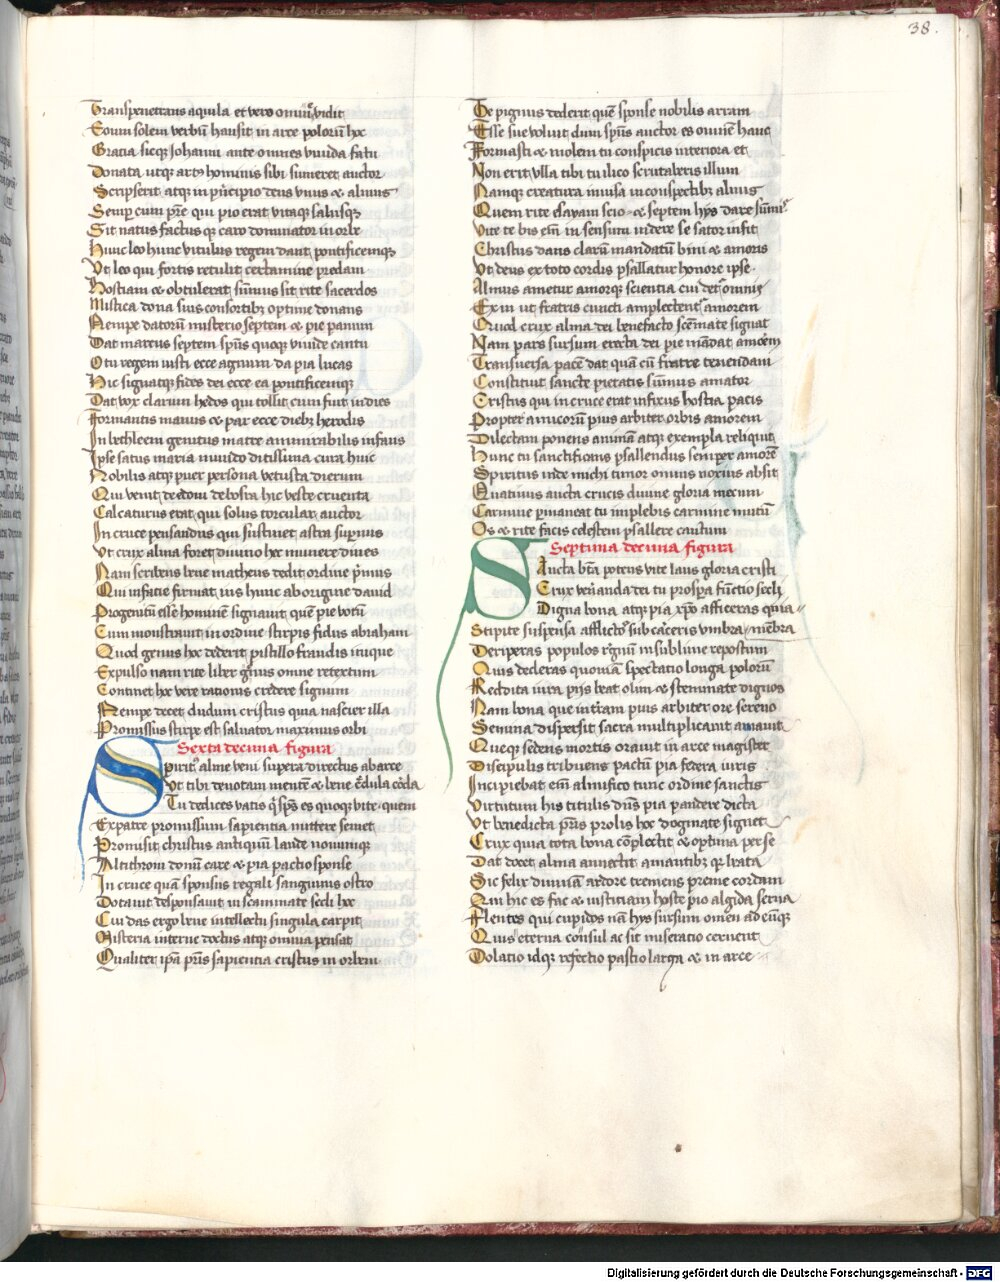 38.
Transpenettrans aquila et vero omniũ vidit
Eoum solem verbũ hausit in arce polorũ hoc
Gratia sicq̨ Johanni ante omnes viuida fatu
Donata utq̨ artꝰ hominis sibi sumeret auctor
Scripserit atq̨ in p̃ncipio deus vnus ⁊ almus
Semp̲ cum p̃re qui pio erat vitaq̨ salusq̨
Sit natus factus q̨ caro dominator in orbe
Hunc leo hunc vitulus regem dant pontificemq̨
Vt leo qui fortis retulit certamine predam
Hostiam ⁊ obtulerat sũmus sit rite sacerdos
Mistica dona suis consortibꝫ optime donans
Nempe datorũ misterio septem ⁊ pie panum
Dat mateus septem sp̃us quoq̨ viuide cantu
O tu regem iusti ecce agnum da pia lucas
Hic signatq̨ fides dei ecce ea pontificemq̨
Dat vox clarum hedos qui tollit cum fuit in dies
Formantis manus ⁊ par ecce diebꝫ herodis
In bethleem genitus matre ammirabilis infans
Ipse satus maria mundo ditissima cura huic
Nobilis atq̨ puer persona vetusta dierum
Qui venit de edom de bosra hic veste cruenta
Calcaturus erat qui solus torcular auctor
In cruce pensandus qui sustinet astra supinus
Vt crux alma foret diuino hoc munere diues
Nam scribens bene matheus dedit ordine p̃mus
Qui in facie firmat ius hunc ab origine dauid
Progenitũ esse hominẽ signauit quẽ pie votũ
Cum monstrauit in ordine stirpis fidus abraham
Quod genus hoc dederit pistillo fraudis inique
Expulso nam rite liber gẽus omne retextum
Continet hoc vere rationis credere signum
Nempe decet dudum cristus quia nascier illa
Promissus stirpe est saluator maximus orbi
Sexta decima figura
Spiritꝰ alme veni supera directus ab arce
Vt tibi deuotam mentẽ ⁊ bene c̃dula cõda
Tu dedices vatis q̃ sp̃s es quoq̨ bite quem
Ex patre promissum sapientia mittere semet
Promisit christus antiquũ laude nouumq̨
Altithroni donũ care ⁊ pia pactio sponse
In cruce quã sponsus regali sanguinis ostro
Dotauit desponsauit in scammate secli hoc
Cui das ergo bene intellectu singula carpit
Misteria interne doctus atq̨ omnia pensat
Qualiter ip̃a p̃ris sapientia cristus in orbem
Te pignus dederit quẽ sponse nobilis arram
Esse sue voluit dum sp̃us auctor es omnẽ hanc
Formasti ⁊ molem tu conspicis interiora et
Non erit vlla tibi tu ilico scrutaberis illum
Namq̨ creatura inuisa in conspectibꝫ almus
Quem rite esayam scio ⁊ septem hijs dare sũmꝰ
Vite te bis eñ in sensum videre se sator insit
Christus dans clarũ mandatũ bini ⁊ amoris
Vt deus ex toto cordis psallatur honore ipse
Almus ametur amorq̨ scientia cui det᷑ omnis
Ex in ut fratris cuncti amplectent᷑ amorem
Quod crux alma dei benefacto scẽmate signat
Nam pars sursum erecta dei pie mãdat amorẽ
Transuersa pacẽ dat quã cũ fratre tenendam
Constituit sancte pietatis sũmus amator
Cristus qui in cruce erat infixus hostia pacis
Propter amicorũ pius arbiter orbis amorem
Dilectam ponens animã atq̨ exempla reliquit
Hunc tu sanctificans psallendus semper amorẽ
Spiritus inde michi timor omnis noxius absit
Quatinus aucta crucis diuine gloria mecum
Carmine p̱maneat tu implebis carmine mutũ
Os ⁊ rite facis celestem psallere cantum
Septima decima figura
Sancta bñta potens vite laus gloria cristi
Crux veñanda dei tu prosp̱a fũctio secli
Digna bona atq̨ pia xp̃o afficeras quia
Stipite suspensa afflictoꝝ sub carceris vmbra membra
Deriperas populos r̃gnũ in sublime repostum
Quis dederas quoniam spectatio longa polorũ
Reddita iura pijs beat olim ⁊ stemmate dignos
Nam bona que intram pius arbiter ore sereno
Semina dispersit sacra multiplicauit amauit
Queq̨ sedens mortis orauit in arce magister
Discipulis tribuens pactũ pia federa iuris
Incipiebat eñ almifico tunc ordine sanctis
Virtutum his titulis dñs pia pandere dicta
Vt benedicta p̃ris prolis hoc dogmate signet
Crux quia tota bona cõplectit᷑ ⁊ optima per se
Dat docet alma annectit amantibꝫ q̨ beata
Sic felix diuinũ ardore tremens preme cordam
Qui hic es fac ⁊ iustitiam hoste pio algida serua
Flentes qui cupidos nã hijs sursum omen ad eũq̨
Quis eterna consul ac sit miseratio cernent
Solatio idq̨ refectio pastio larga ⁊ in arce
Digitalisierung gefördert durch die Deutsche Forschungsgemeinschaft - DFG